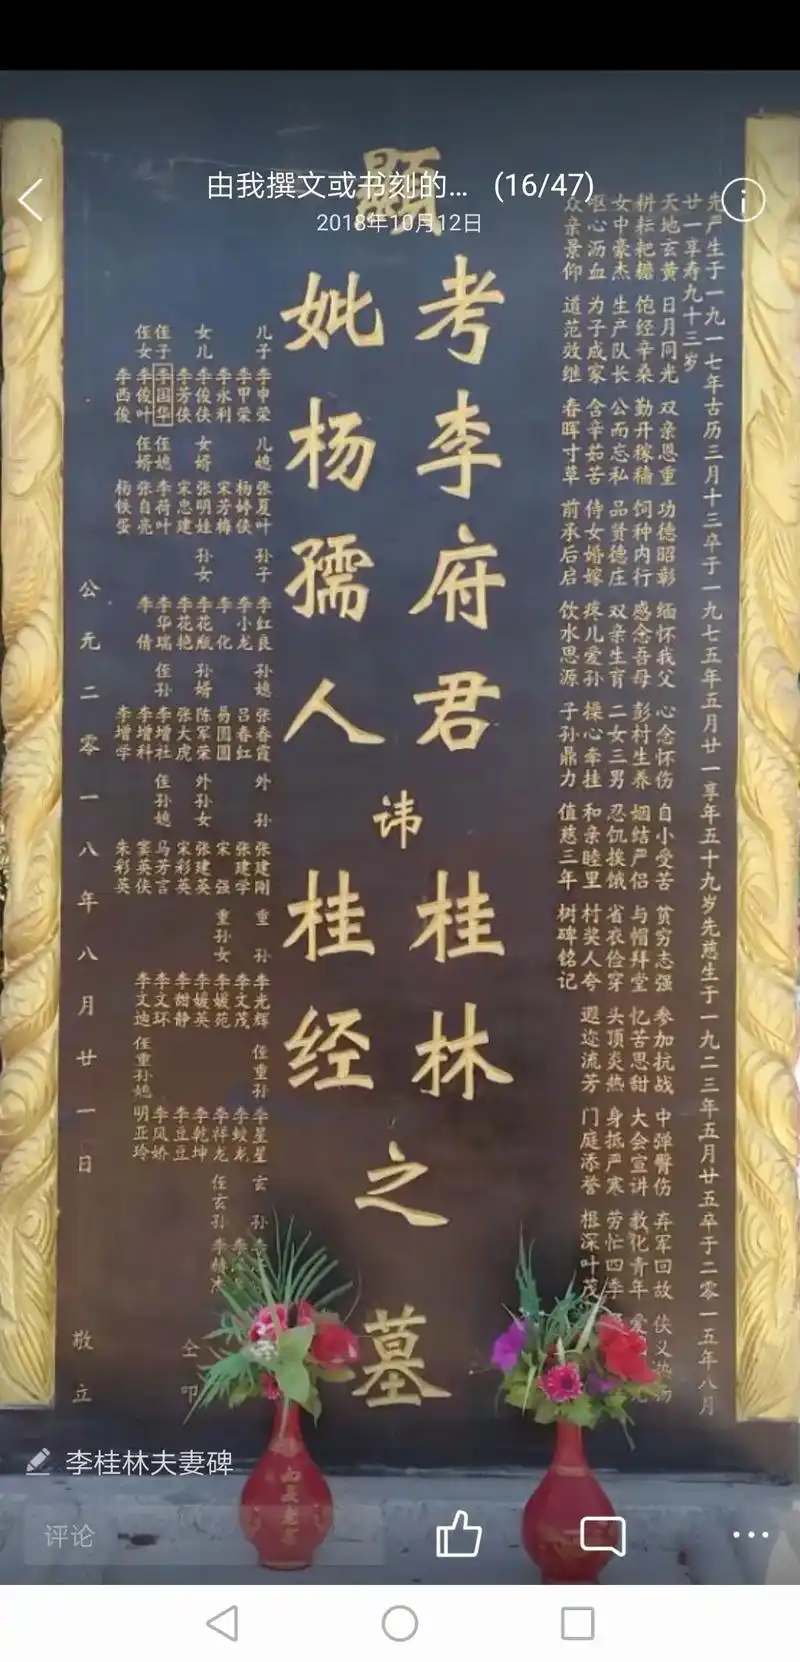 由我撰文或书刻的... (16/47)
2018年10月12日
先严生于一九一七年古历三月十三卒于一九七五年五月廿一享年五十九岁先慈生于一九二三年五月廿五卒于二零一五年八月
廿一享寿九十三岁
天地玄黄 日月同光 双亲恩重 功德昭彰 缅怀我父 心念怀伤 自小受苦 贫穷志强 参加抗战 中弹臂伤 弃军回故 侠义
耕耘耙耱 饱经辛桑 勤开稼穑 饲种内行 感念吾母 彭村生养 姻结严侣 与帽拜堂 忆苦思甜 大会宣讲 教化青年 爱
女中豪杰 生产队长 公而忘私 品贤德庄 双亲生育 二女三男 忍饥挨饿 省衣俭穿 头顶炎热 身抵严寒 劳忙四季
呕心沥血 为子成家 含辛如苦 侍女婚嫁 疼儿爱孙 操心牵挂 和亲睦里 村奖人夸 遐迩流芳 门庭添誉 根深叶茂
众亲景仰 道范效继 春晖寸草 前承后启 饮水思源 子孙鼎力 值慈三年 树碑铭记
顕
考李府君 讳 桂林
妣杨孺人 桂经
之墓
儿子 李申荣 儿媳 张夏叶 孙子 李红良 孙媳 张春霞 外孙 张建刚 重孙 李光辉 侄重孙 李星星 玄孙 李
李甲荣 杨婷侠 李小龙 吕春虹 张建学 李文茂 李蛟龙
李永利 宋芳梅 李化 易圆圆 宋强 重孙女 李媛苑 李祥龙 侄玄孙
女儿 李俊侠 女婿 张明娃 孙女 李花瓶 孙婿 陈军荣 外孙女 张建英 李媛英 李乾坤
李芳侠 宋忠建 李花艳 张大虎 宋彩英 李甜静 李豆豆
侄子 李国华 侄媳 李荷叶 李华瑞 侄孙 李增社 侄孙媳 马芳言 李文环 李凤娇
侄女 李俊叶 侄婿 张自亮 李倩 李增科 窦英侠 李文迪 侄重孙媳 明亚玲
李西俊 杨铁蛋 李增学 朱彩英
仝叩
公元二零一八年八月廿一日 敬立
李桂林夫妻碑
评论